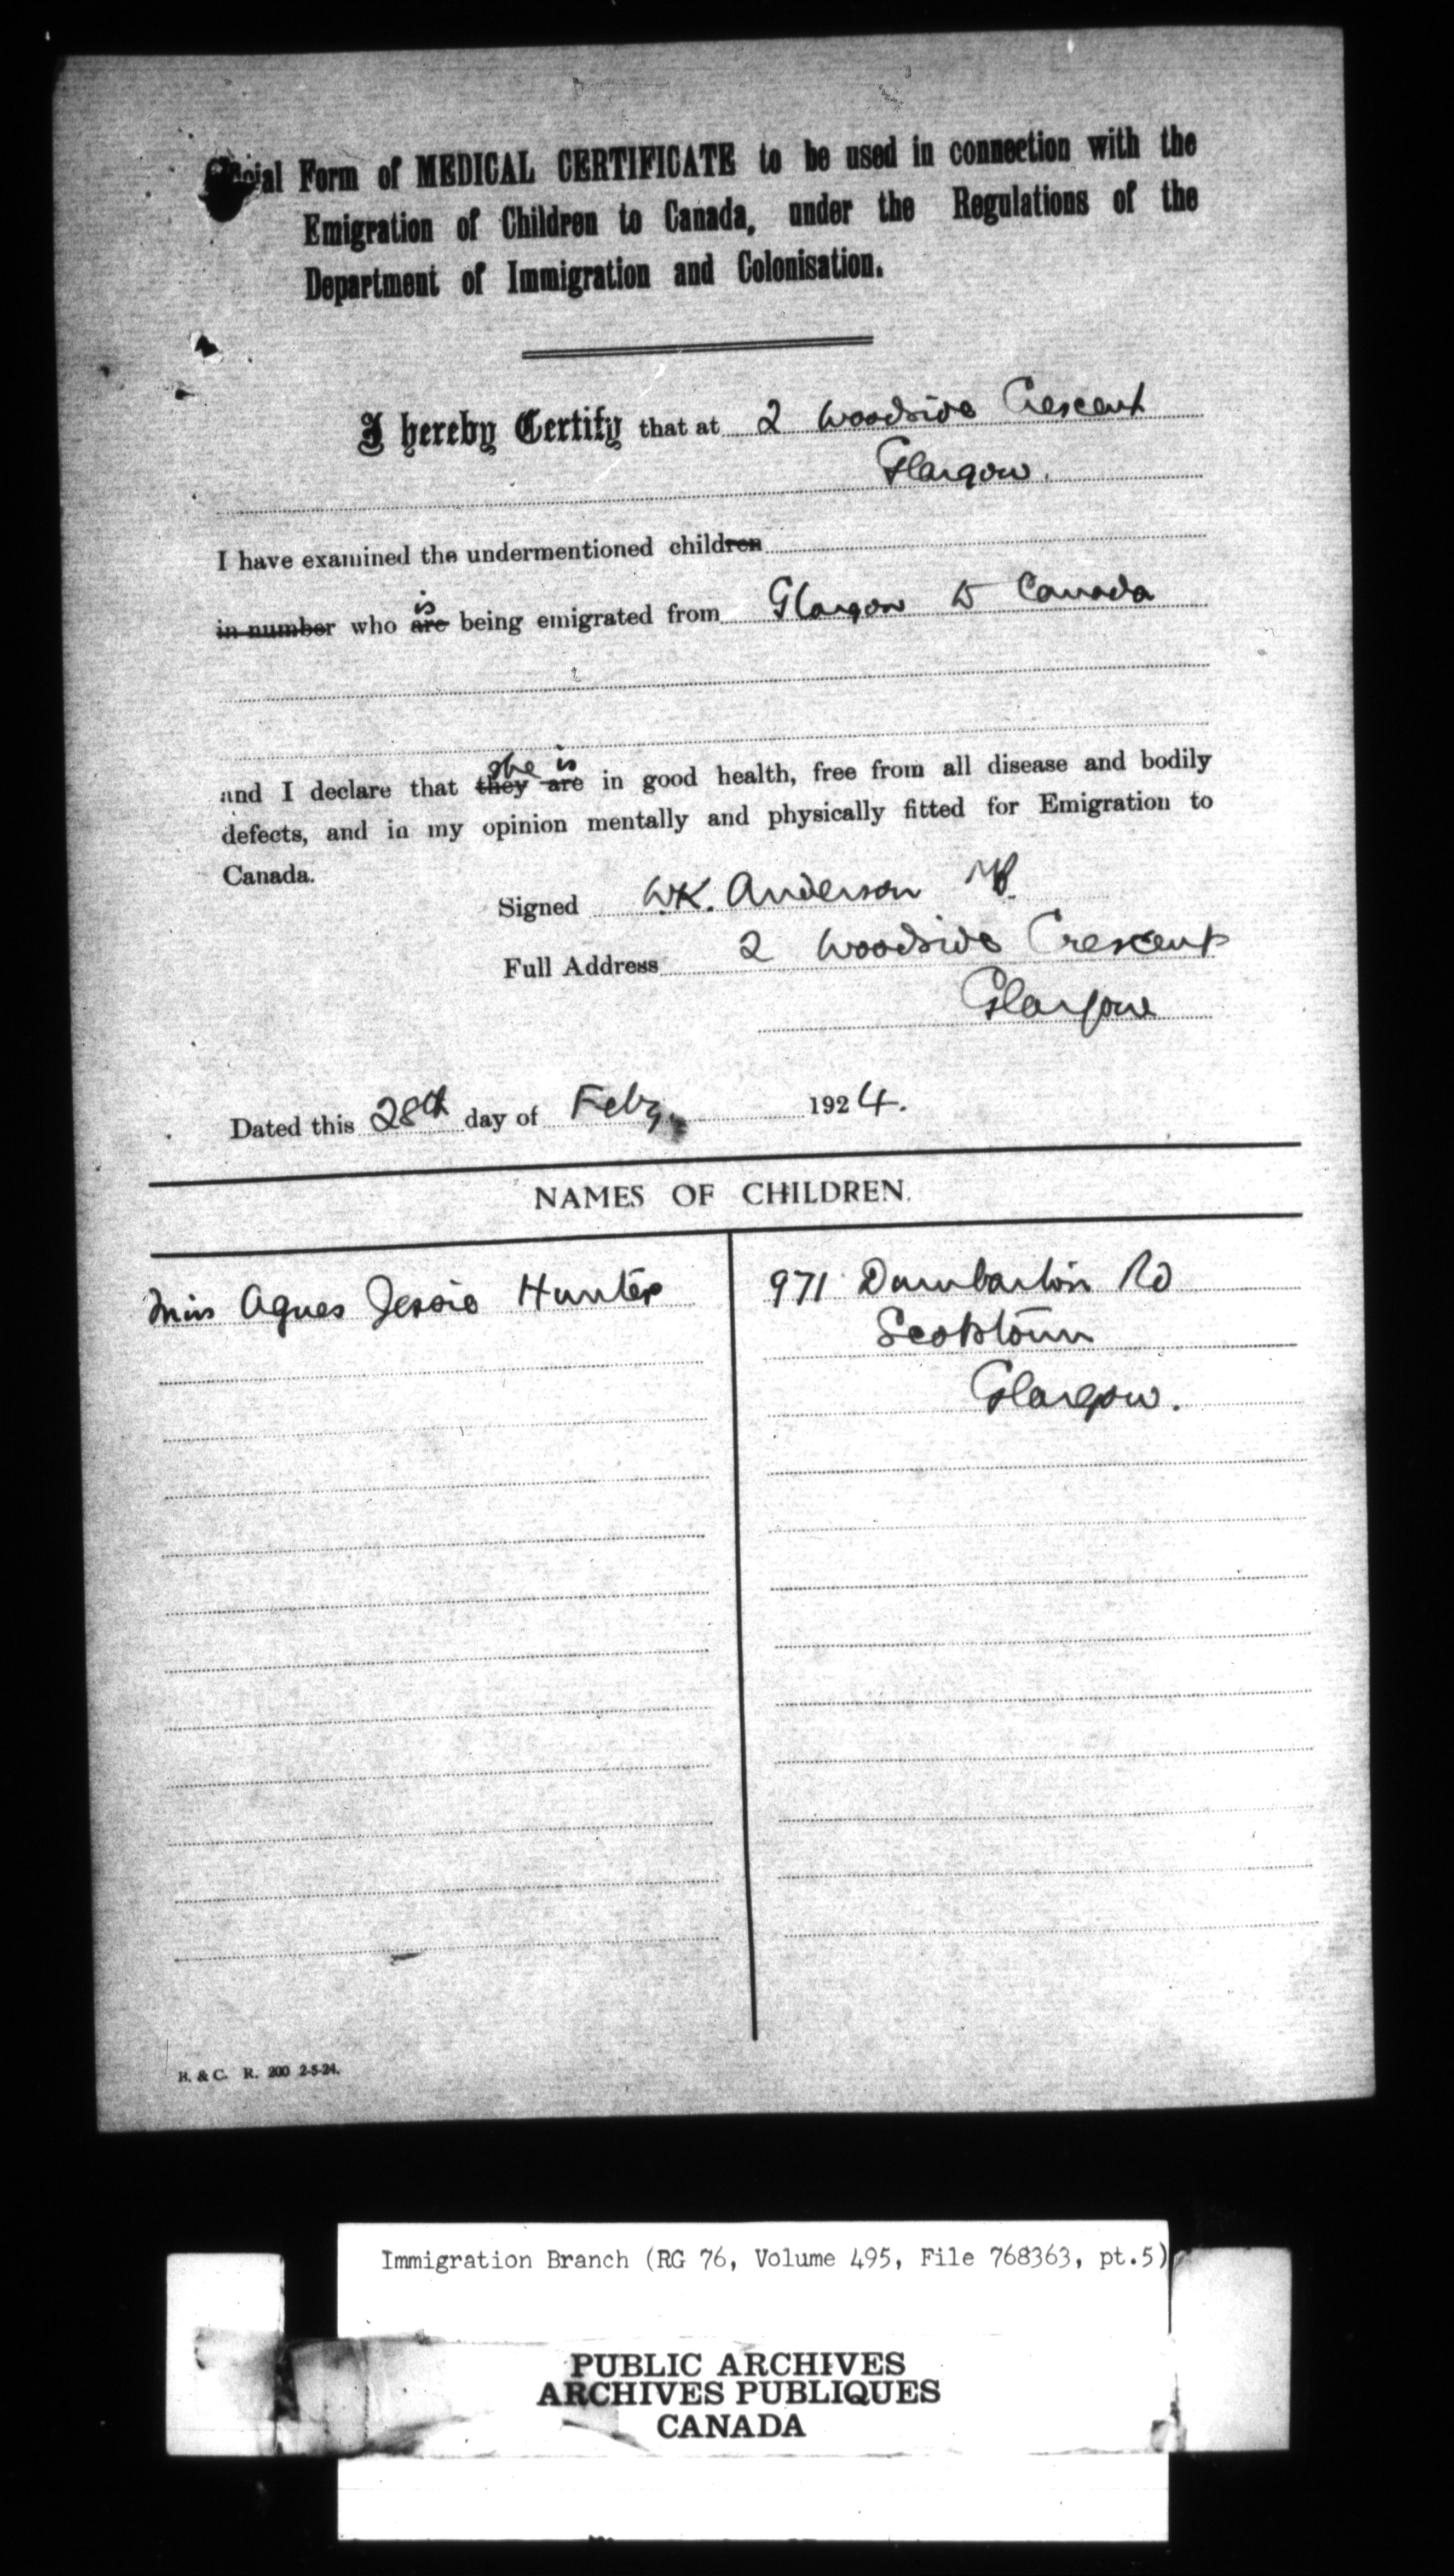 Official Form of MEDICAL CERTIFICATE to be used in connection with the
Emigration of Children to Canada, under the Regulations of the
Department of Immigration and Colonisation.
I hereby Certify that at 2 Woodside Crescent
Glasgow.
I have examined the undermentioned children
is
in number who are being emigrated from Glasgow to Canada
she is
and I declare that they are in good health, free from all disease and bodily
defects, and in my opinion mentally and physically fitted for Emigration to
Canada.
Signed W.K. Anderson MB.
Full Address 2 Woodside Crescent
Glasgow
Dated this 28th day of Feby. 1924.
NAMES OF CHILDREN.
Miss Agnes Jessie Hunter 971 Dumbarton Rd
Scotstoun
Glasgow.
H. & C. R. 200 2-5-24.
Immigration Branch (RG 76, Volume 495, File 768363, pt.5)
PUBLIC ARCHIVES
ARCHIVES PUBLIQUES
CANADA